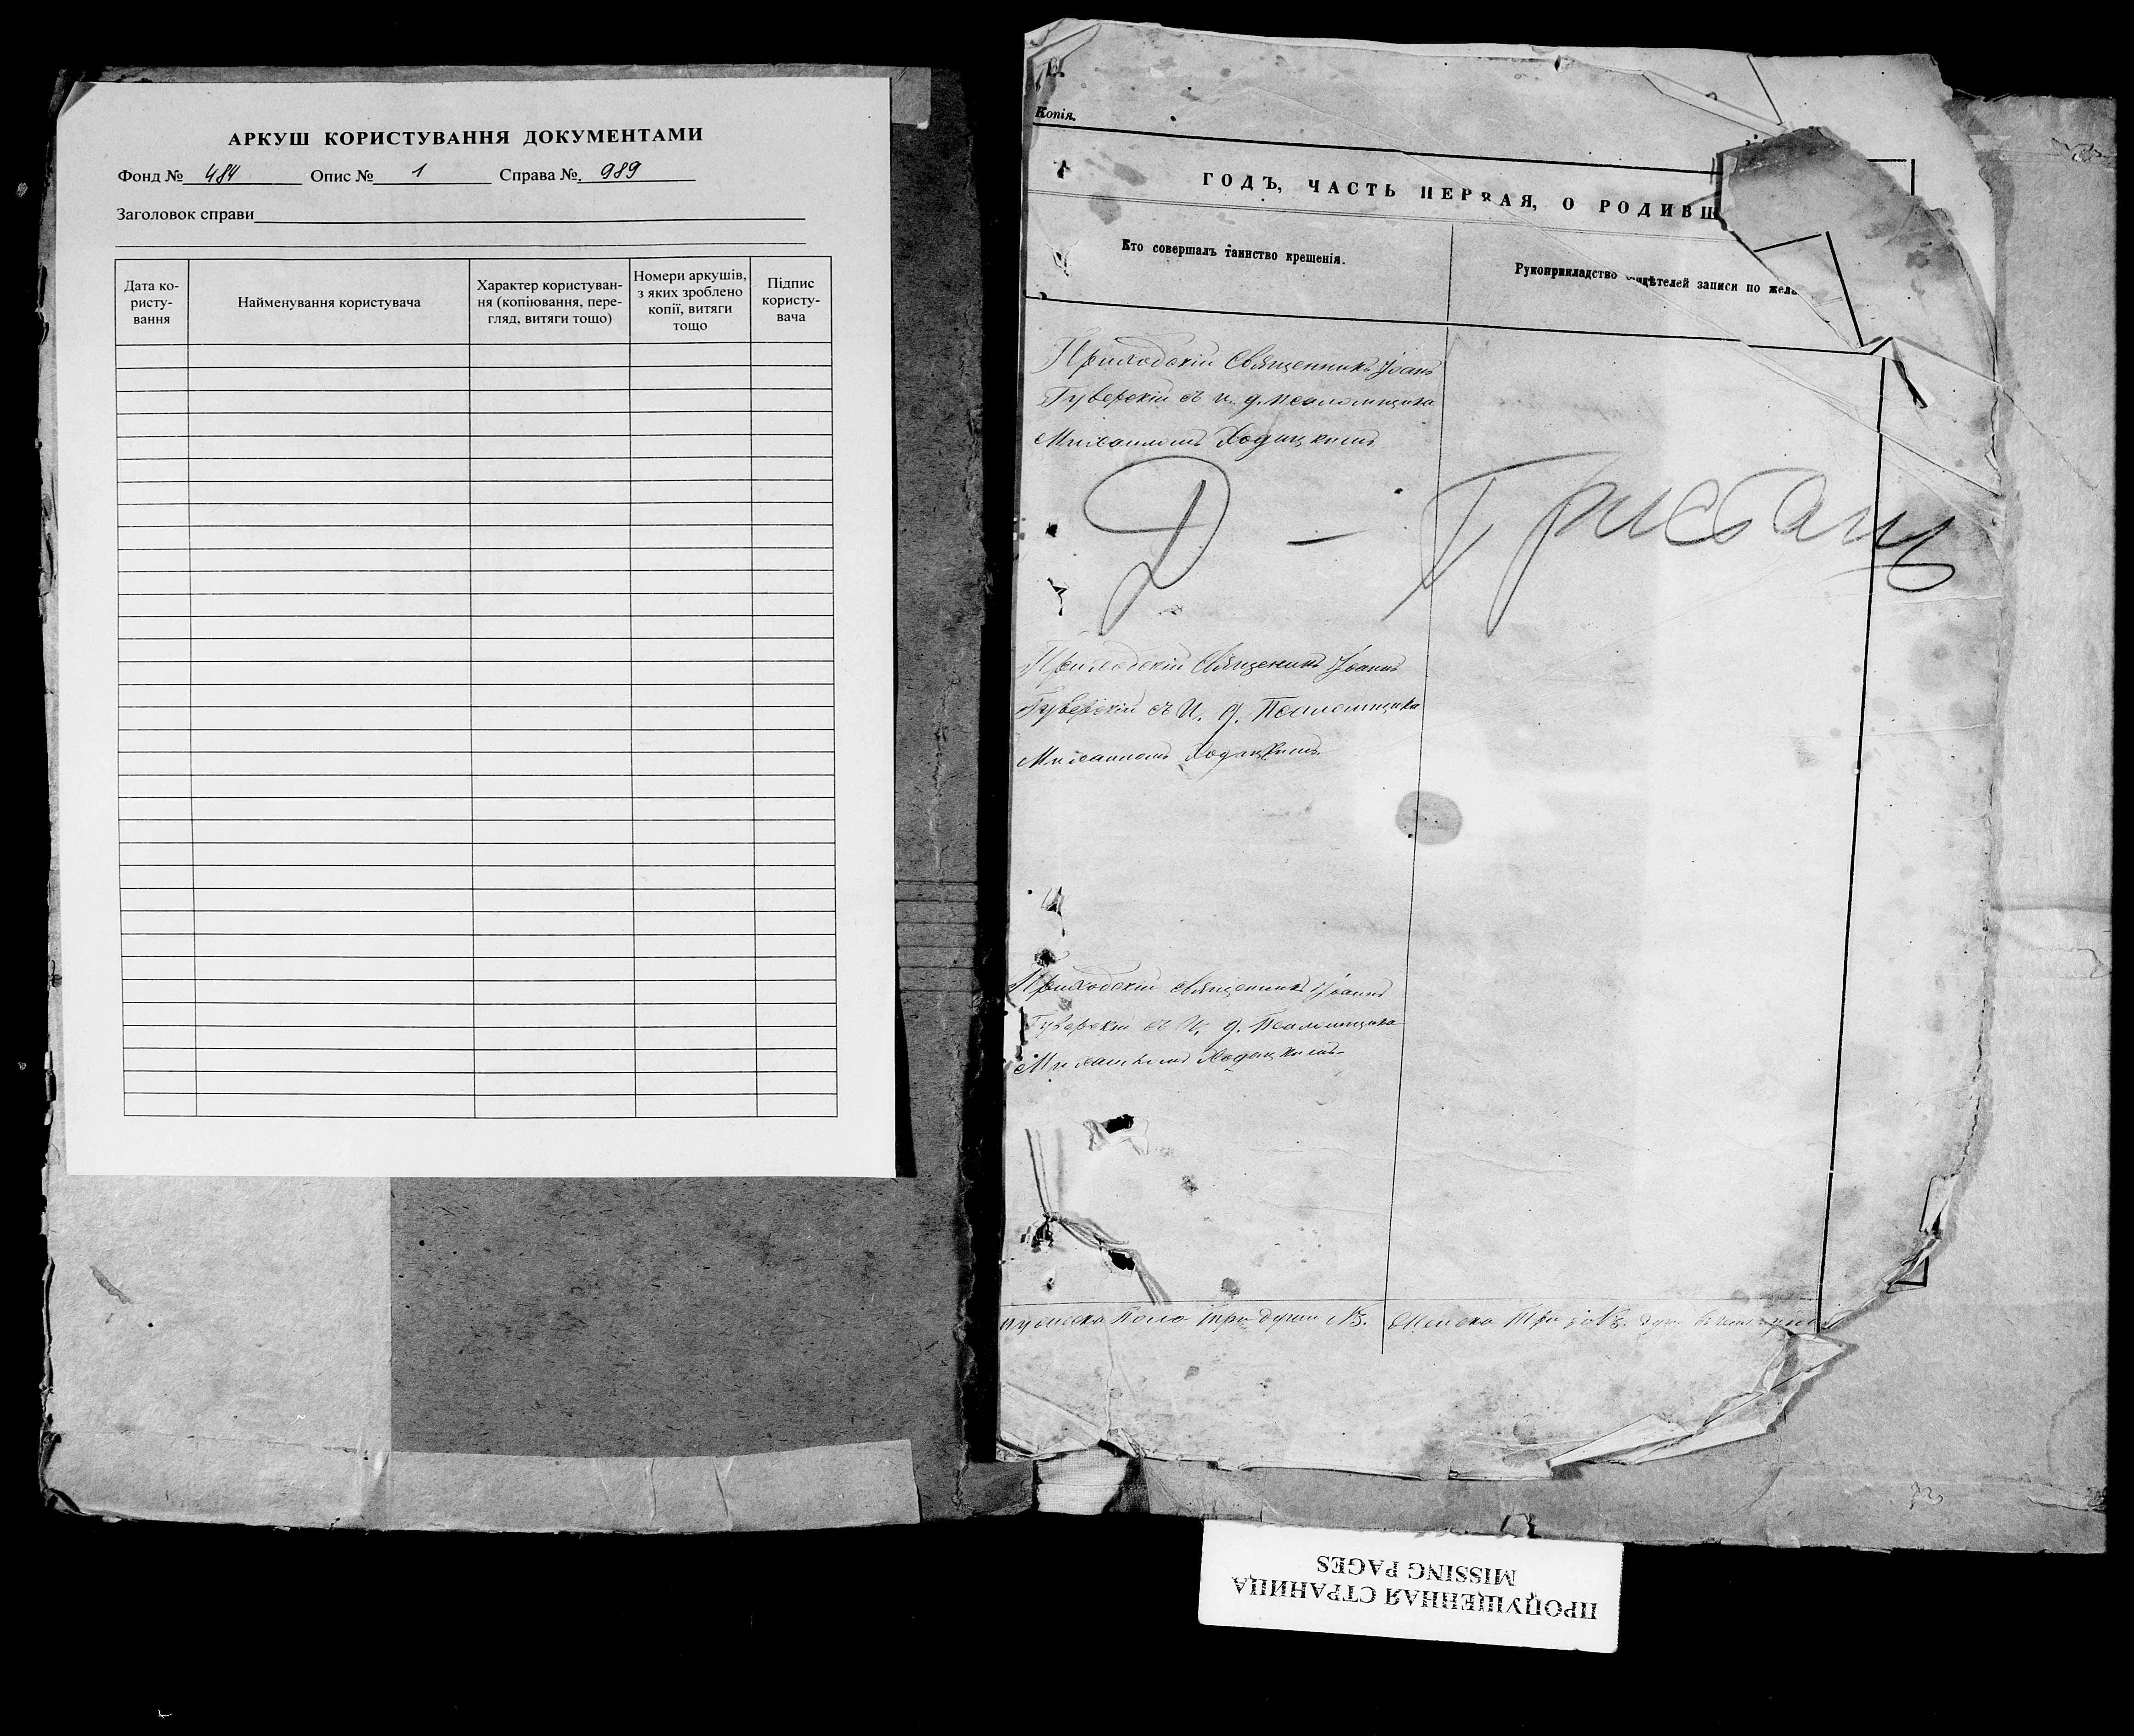 АРКУШ КОРИСТУВАННЯ ДОКУМЕНТАМИ
Фонд № 484 Опис № 1 Справа № 989
Заголовок справи
Дата ко-
ристу-
вання
Найменування користувача
Характер користуван-
ня (копіювання, пере-
гляд, витяги тощо)
Номери аркушів,
з яких зроблено
копії, витяги
тощо
Підпис
користу-
вача
Копія.
ГОДЪ, ЧАСТЬ ПЕРВАЯ, О РОДИВШ
Кто совершалъ таинство крещенія.
Рукоприкладство свидѣтелей записи по жела
Приходскій Священникъ Іоанъ
Гуверскій съ и. д. псаломщика
Михаиломъ Ходицкимъ
Д —
Приходскій Священикъ Іоаннъ
Гуверскій съ И. д. Псаломщика
Михаиломъ Ходицкимъ
Приходскій священникъ Іоаннъ
Гуверскій съ И. д. Псаломщика
Михаиломъ Ходицкимъ
пола три души №3. Женска три
ПРОПУЩЕННАЯ СТРАНИЦА
MISSING PAGES